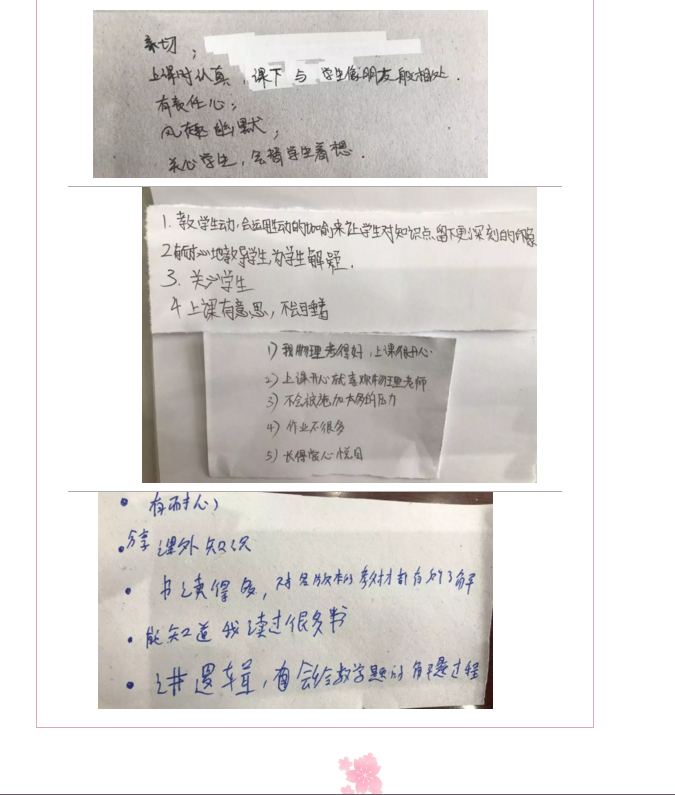 亲切；
上课时认真，课下与学生像朋友般相处．
有责任心；
风趣幽默；
关心学生，会替学生着想．
1. 教学生动，会运用生动的比喻来让学生对知识点留下更深刻的印象
2 有耐心地教导学生，为学生解疑．
3. 关心学生
4 上课有意思，不会睡着
1) 我物理考得好，上课很开心．
2) 上课开心就喜欢物理老师
3) 不会被施加太多的压力
4) 作业不很多
5) 长得赏心悦目
• 有耐心）
• 分享课外知识
• 书读得多，对各版本的教材都有所了解
• 能知道我读过很多书
• 讲逻辑，会给数学题的解题过程